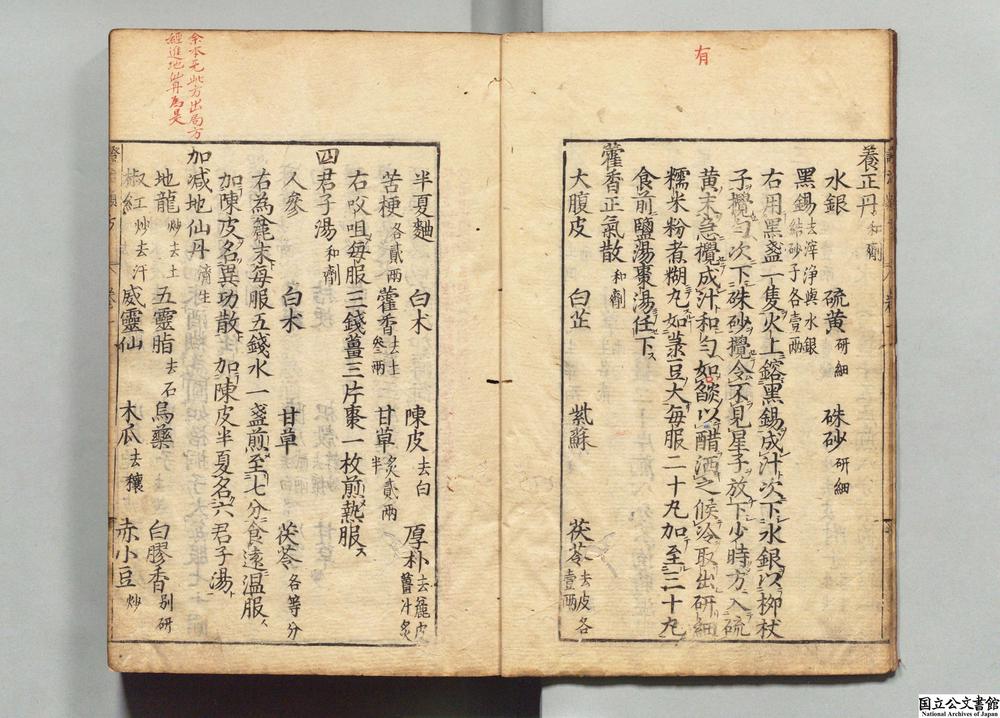 有
養正丹 和劑
水銀 硫黄 研細 硃砂 研細
黑錫 去滓淨與水銀結砂子各壹兩
右用黑盞一隻火上鎔黑錫成汁次下水銀以柳杖
子攪勻次下硃砂攪令不見星子放下少時方入硫
黄末急攪成汁和勻如𦦨以醋洒之候冷取出研細
糯米粉煮糊丸如菉豆大每服二十丸加至三十丸
食前鹽湯棗湯任下
藿香正氣散 和劑
大腹皮 白芷 紫蘇 茯苓 去皮各壹兩
半夏麯 白朮 陳皮 去白 厚朴 去麄皮薑汁炙
苦梗 各貳兩 藿香 去土叁兩 甘草 炙貳兩半
右㕮咀每服三錢薑三片棗一枚煎熱服
四君子湯 和劑
人參 白朮 甘草 茯苓 各等分
右為麄末每服五錢水一盞煎至七分食遠温服
加陳皮名異功散 加陳皮半夏名六君子湯
加减地仙丹 濟生
地龍 炒去土 五靈脂 去石 烏藥 白膠香 别研
椒紅 炒去汗 威靈仙 木瓜 去穰 赤小豆 炒
余本无此方出局方
經進地仙丹為是
国立公文書館
National Archives of Japan